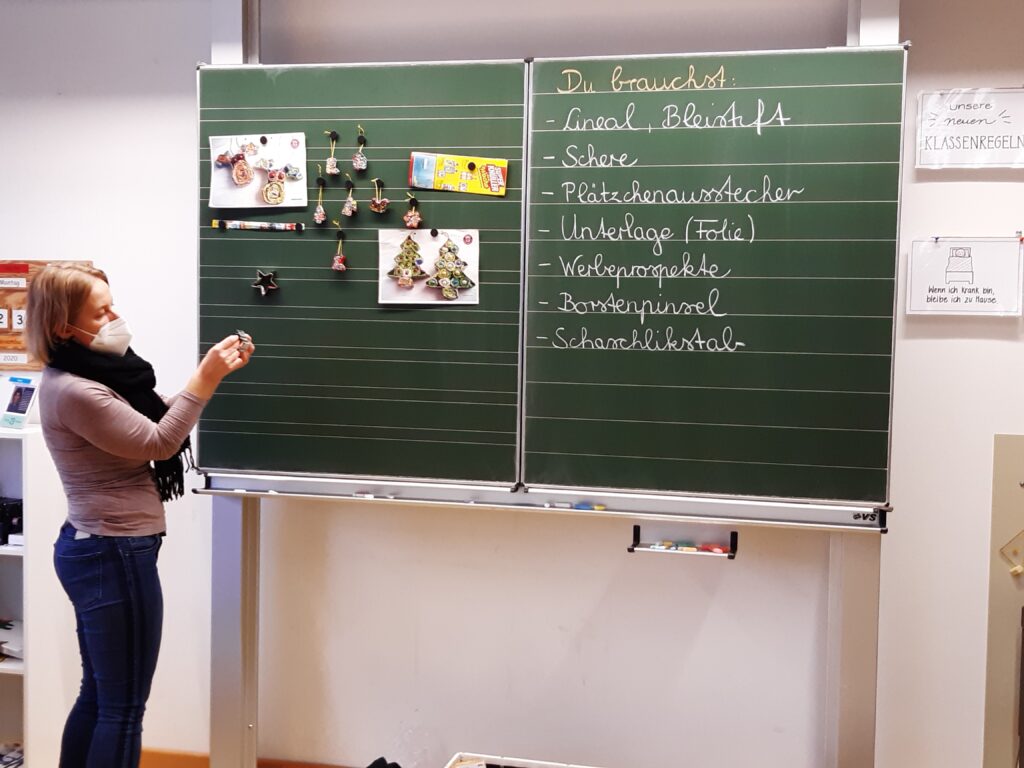 Du brauchst:
- Lineal, Bleistift
- Schere
- Plätzchenausstecher
- Unterlage (Folie)
- Werbeprospekte
- Borstenpinsel
- Schaschlikstab
unsere
neuen
KLASSENREGELN
Wenn ich krank bin,
bleibe ich zu Hause.
Montag
2 3
2020
VS